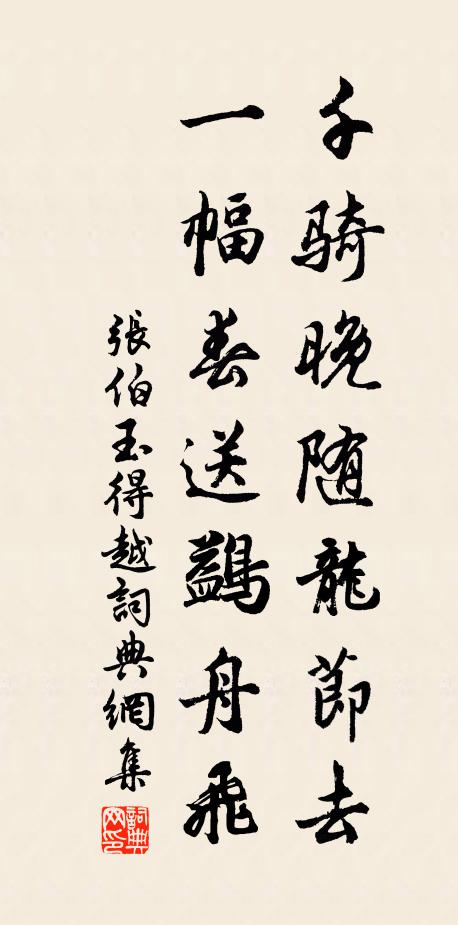 千騎晚随龍節去
一幅春送鷁舟飛
張伯玉得越詞典網集
詞典网印